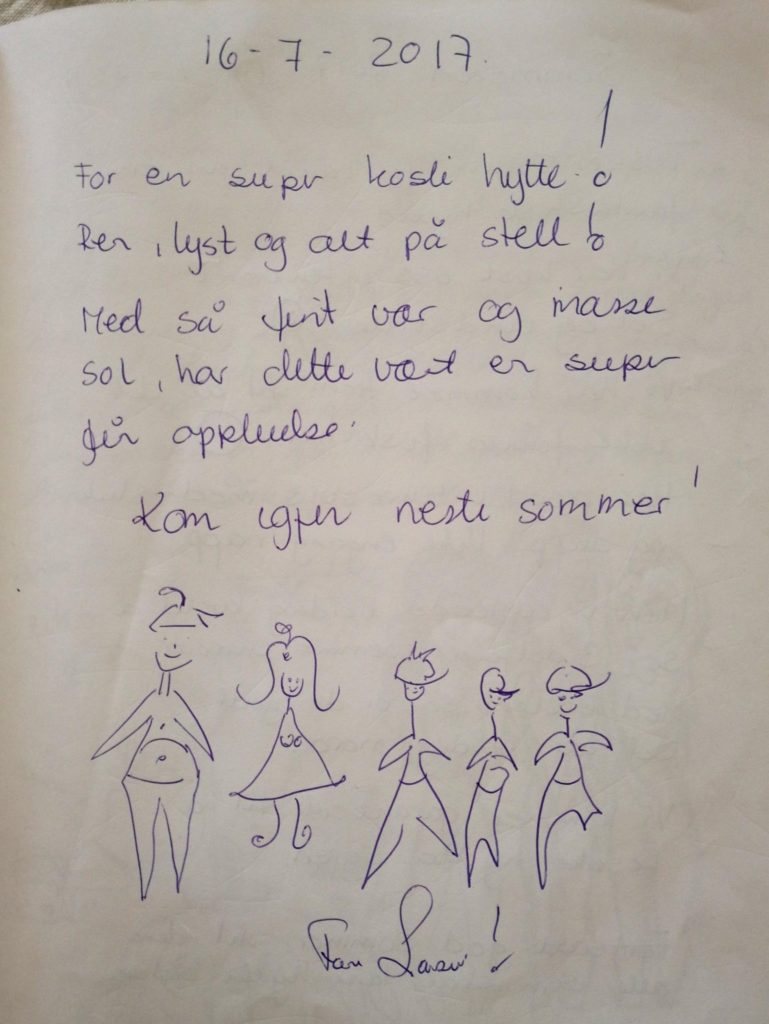 16-7-2017.
For en super kosli hytte!
Ren, lyst og alt på stell!
Med så fint vær og masse
sol, har dette vært en super
opplevelse.
Kom igjen neste sommer!
Fam Larsen!